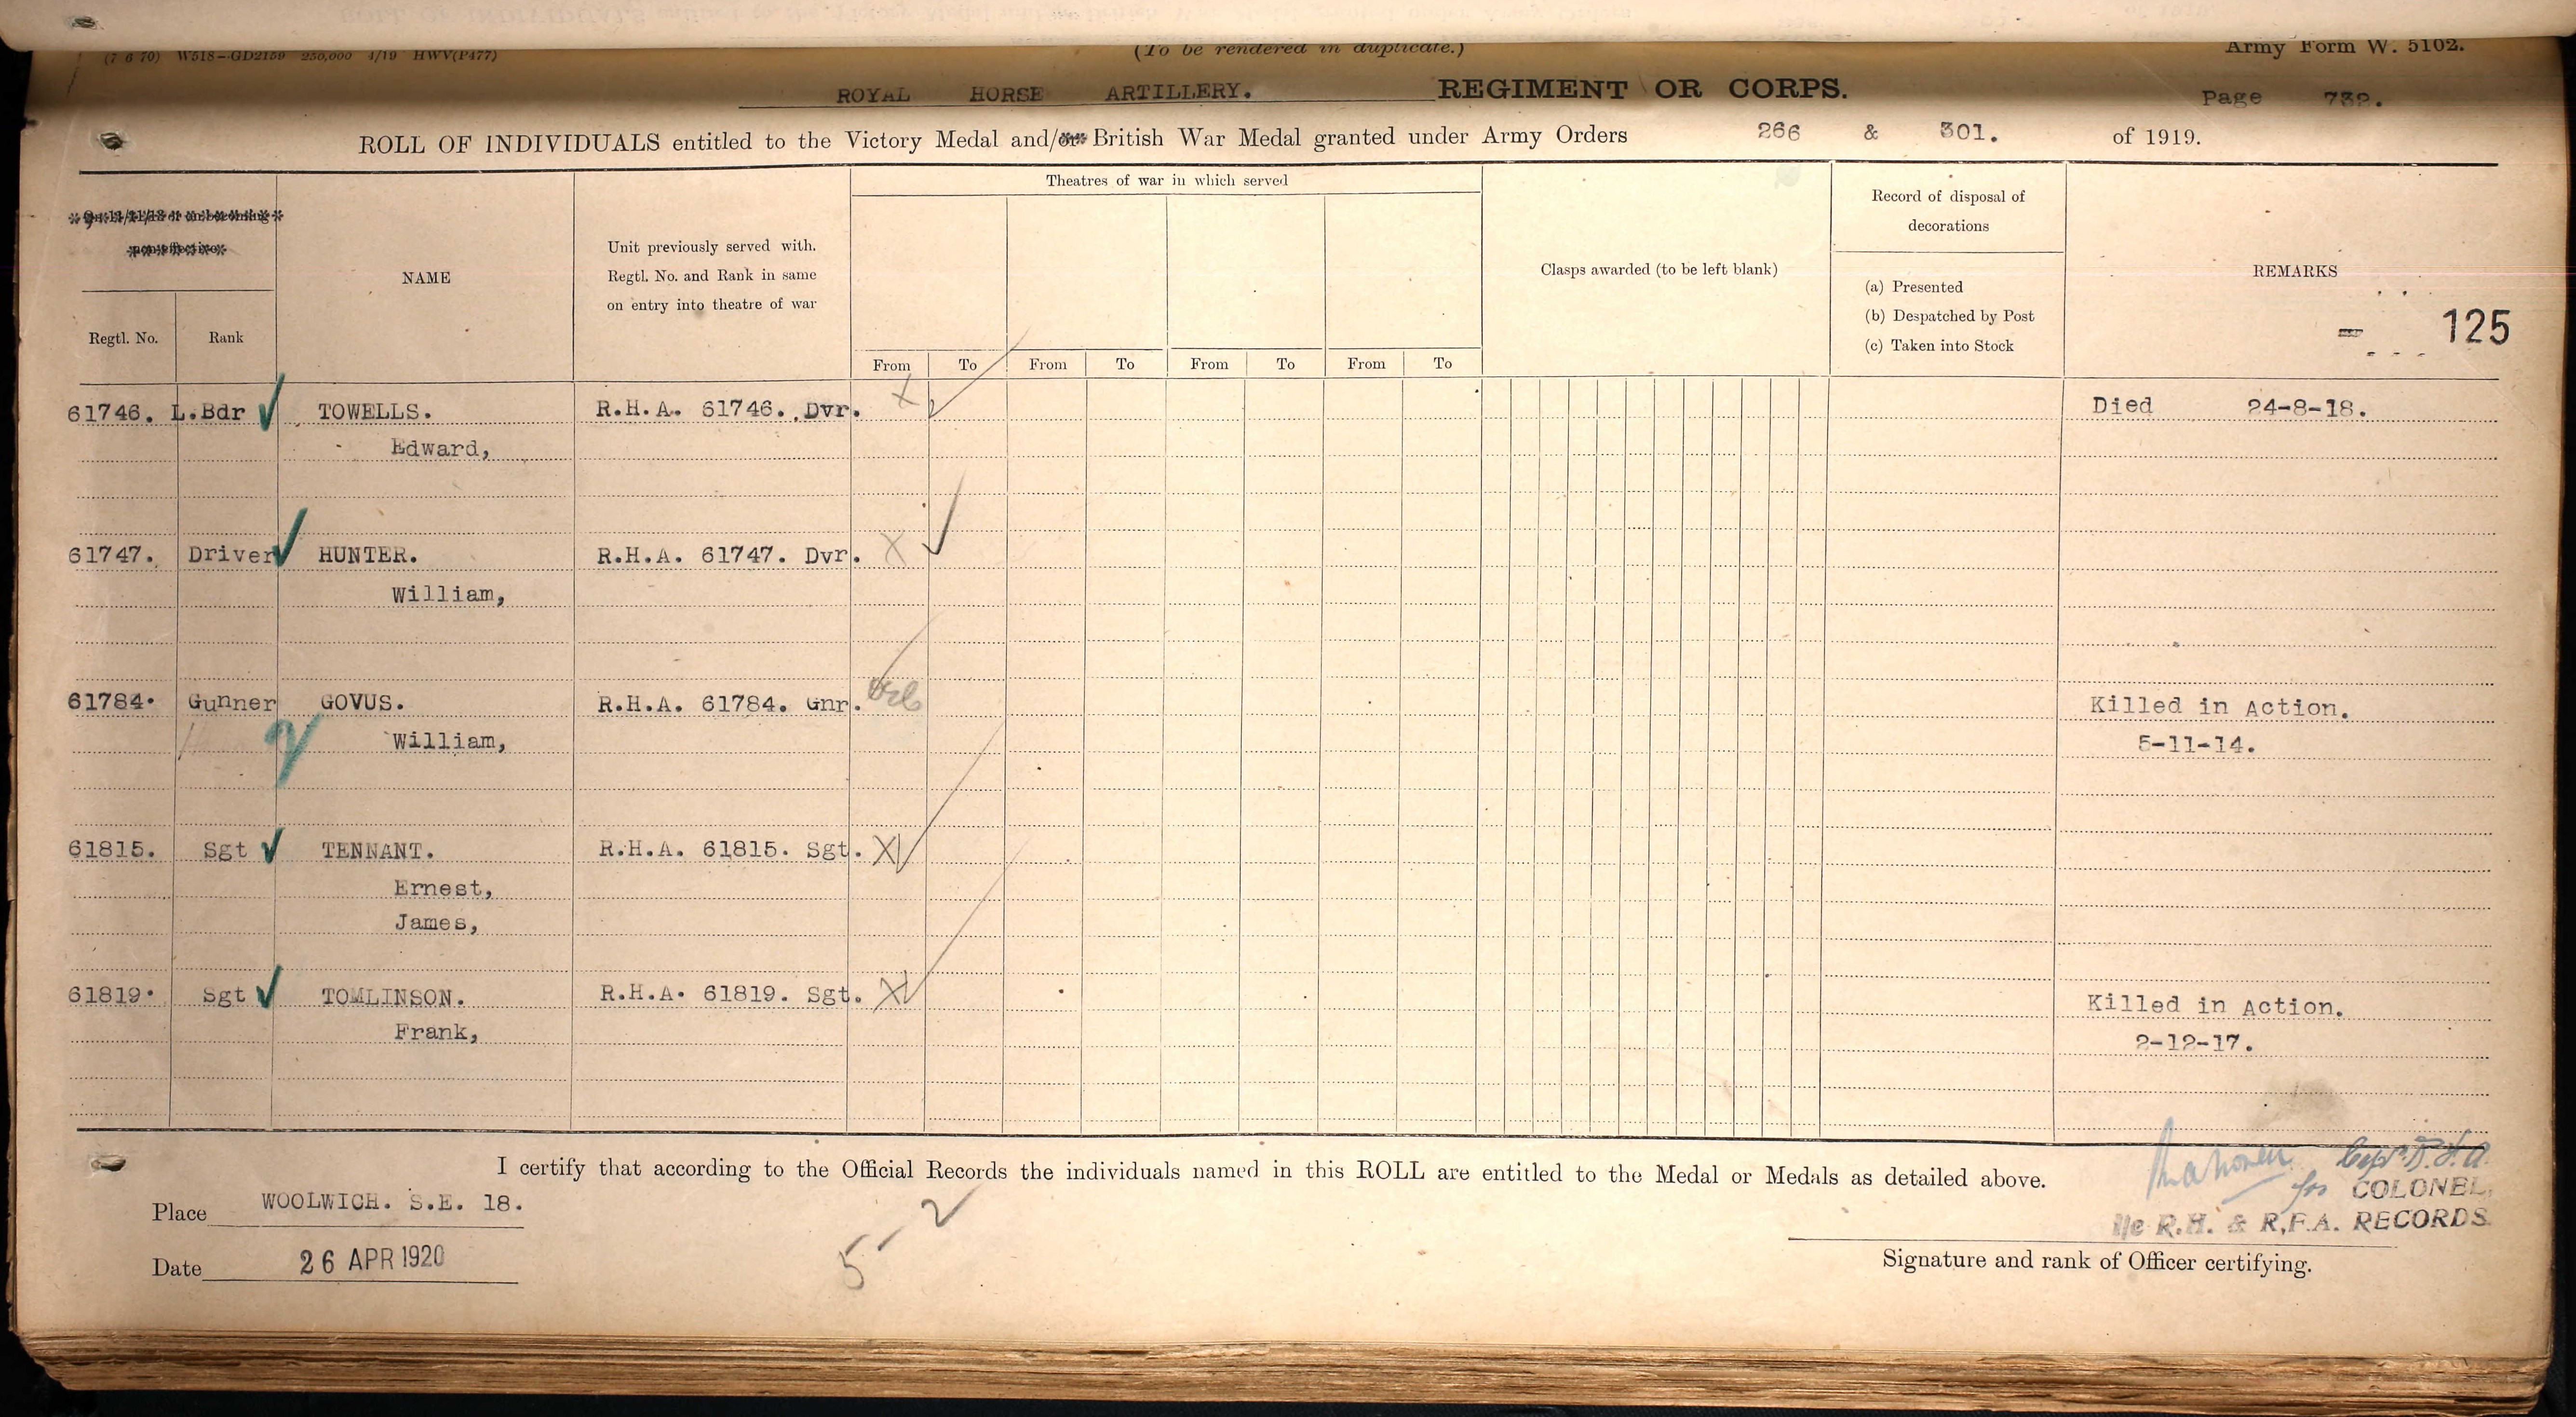 (7 6 70) W518—GD2159 250,000 4/19 HWV(P477)
(To be rendered in duplicate.)
Army Form W. 5102.
ROYAL HORSE ARTILLERY. REGIMENT OR CORPS.
Page 732.
ROLL OF INDIVIDUALS entitled to the Victory Medal and/or British War Medal granted under Army Orders 266 & 301. of 1919.
Theatres of war in which served
Regtl. No.
Rank
NAME
Unit previously served with.
Regtl. No. and Rank in same
on entry into theatre of war
From To From To From To From To
Clasps awarded (to be left blank)
Record of disposal of
decorations
(a) Presented
(b) Despatched by Post
(c) Taken into Stock
REMARKS
125
61746. L.Bdr TOWELLS. R.H.A. 61746. Dvr. X Died 24-8-18.
Edward,
61747. Driver HUNTER. R.H.A. 61747. Dvr. X
William,
61784. Gunner GOVUS. R.H.A. 61784. Gnr. Killed in Action.
William, 5-11-14.
61815. Sgt TENNANT. R.H.A. 61815. Sgt. X
Ernest,
James,
61819. Sgt TOMLINSON. R.H.A. 61819. Sgt. X Killed in Action.
Frank, 2-12-17.
I certify that according to the Official Records the individuals named in this ROLL are entitled to the Medal or Medals as detailed above.
Place WOOLWICH. S.E. 18.
Date 26 APR 1920
5 - 2
for COLONEL,
I/c R.H. & R.F.A. RECORDS
Signature and rank of Officer certifying.